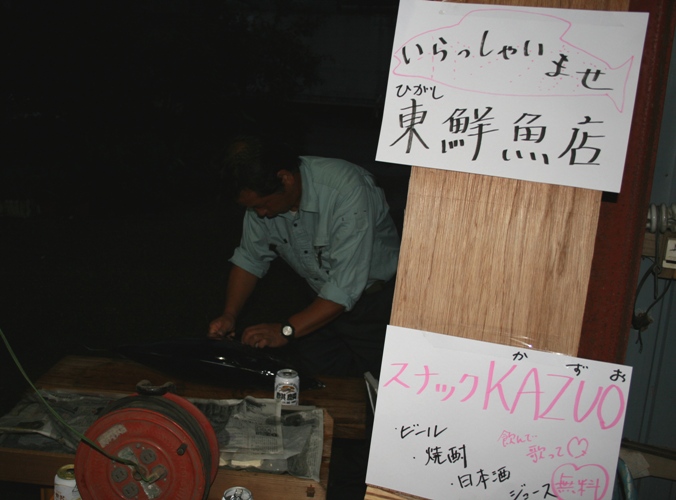 いらっしゃいませ
ひがし
東鮮魚店
かずお
スナックKAZUO
・ビール
・焼酎
・日本酒
ジュース
飲んで
歌って♡
無料